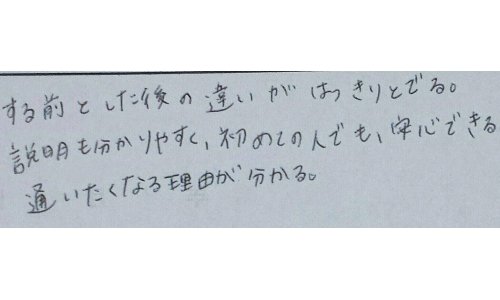 する前とした後の違いがはっきりとでる。
説明も分かりやすく、初めての人でも、安心できる
通いたくなる理由が分かる。